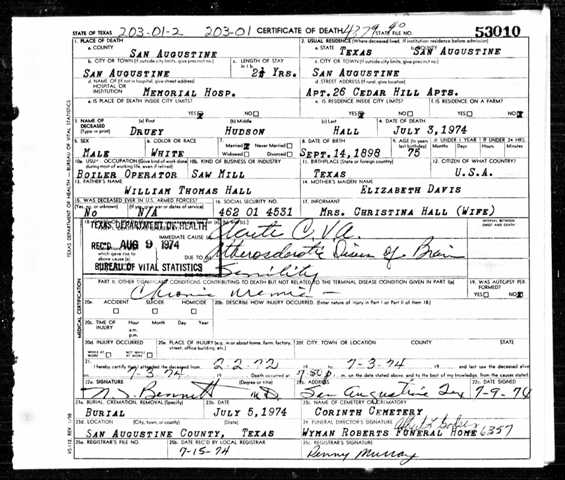 STATE OF TEXAS 203-01-2 203-01 CERTIFICATE OF DEATH STATE FILE NO. 53010
1. PLACE OF DEATH 2. USUAL RESIDENCE (Where deceased lived. If institution residence before admission)
a. COUNTY SAN AUGUSTINE a. STATE TEXAS b. COUNTY SAN AUGUSTINE
b. CITY OR TOWN (If outside city limits, give precinct no.) c. LENGTH OF STAY c. CITY OR TOWN (If outside city limits, give precinct no.)
SAN AUGUSTINE 2½ YRS. SAN AUGUSTINE
d. NAME OF (If not in hospital, give street address) HOSPITAL OR INSTITUTION MEMORIAL HOSP. d. STREET ADDRESS (If rural, give location) APT.26 CEDAR HILL APTS.
e. IS PLACE OF DEATH INSIDE CITY LIMITS? YES NO e. IS RESIDENCE INSIDE CITY LIMITS? YES NO f. IS RESIDENCE ON A FARM? YES NO
3. NAME OF DECEASED (Type or print) (a) First (b) Middle (c) Last 4. DATE OF DEATH
DRUEY HUDSON HALL JULY 3,1974
5. SEX 6. COLOR OR RACE 7. Married Never Married Widowed Divorced 8. DATE OF BIRTH 9. AGE (In years last birthday) IF UNDER 1 YEAR IF UNDER 24 HRS.
MALE WHITE SEPT.14,1898 75
10a. USUAL OCCUPATION (Give kind of work done during most of working life, even if retired) 10b. KIND OF BUSINESS OR INDUSTRY 11. BIRTHPLACE (State or foreign country) 12. CITIZEN OF WHAT COUNTRY?
BOILER OPERATOR SAW MILL TEXAS U.S.A.
13. FATHER'S NAME 14. MOTHER'S MAIDEN NAME
WILLIAM THOMAS HALL ELIZABETH DAVIS
15. WAS DECEASED EVER IN U.S. ARMED FORCES? 16. SOCIAL SECURITY NO. 17. INFORMANT
NO N/A 462 01 4531 MRS. CHRISTINA HALL (WIFE)
TEXAS DEPARTMENT OF HEALTH
REC'D AUG 9 1974
BUREAU OF VITAL STATISTICS
IMMEDIATE CAUSE (a) Acute C.V.A.
DUE TO Atherosclerotic Disease of Brain
Senility
PART II. OTHER SIGNIFICANT CONDITIONS CONTRIBUTING TO DEATH BUT NOT RELATED TO THE TERMINAL DISEASE CONDITION GIVEN IN PART I(a) 19. WAS AUTOPSY PERFORMED?
Chronic Uremia YES NO
20a. ACCIDENT SUICIDE HOMICIDE 20b. DESCRIBE HOW INJURY OCCURRED. (Enter nature of injury in Part I or Part II of Item 18)
20c. TIME OF INJURY Hour Month Day Year a.m. p.m.
20d. INJURY OCCURRED WHILE AT WORK NOT WHILE AT WORK 20e. PLACE OF INJURY (e.g. in or about home, farm, factory, street, office building, etc.) 20f. CITY, TOWN, OR LOCATION COUNTY STATE
21. I hereby certify that I attended the deceased from 2-2-72 7-3-74 and last saw the deceased alive
7-3-74 Death occurred at 7:50 p. m. on the date stated above, and to the best of my knowledge, from the causes stated
22a. SIGNATURE (Degree or title) 22b. ADDRESS 22c. DATE SIGNED
Bennett M.D. San Augustine Tex 7-9-74
23a. BURIAL, CREMATION, REMOVAL (Specify) 23b. DATE 23c. NAME OF CEMETERY OR CREMATORY
BURIAL JULY 5,1974 CORINTH CEMETERY
23d. LOCATION (City, town, or county) (State) 24. FUNERAL DIRECTOR'S SIGNATURE
SAN AUGUSTINE COUNTY, TEXAS WYMAN ROBERTS FUNERAL HOME 6357
25a. REGISTRAR'S FILE NO. 25b. DATE REC'D BY LOCAL REGISTRAR 25c. REGISTRAR'S SIGNATURE
7-15-74 Penny Murray
TEXAS DEPARTMENT OF HEALTH — BUREAU OF VITAL STATISTICS
MEDICAL CERTIFICATION